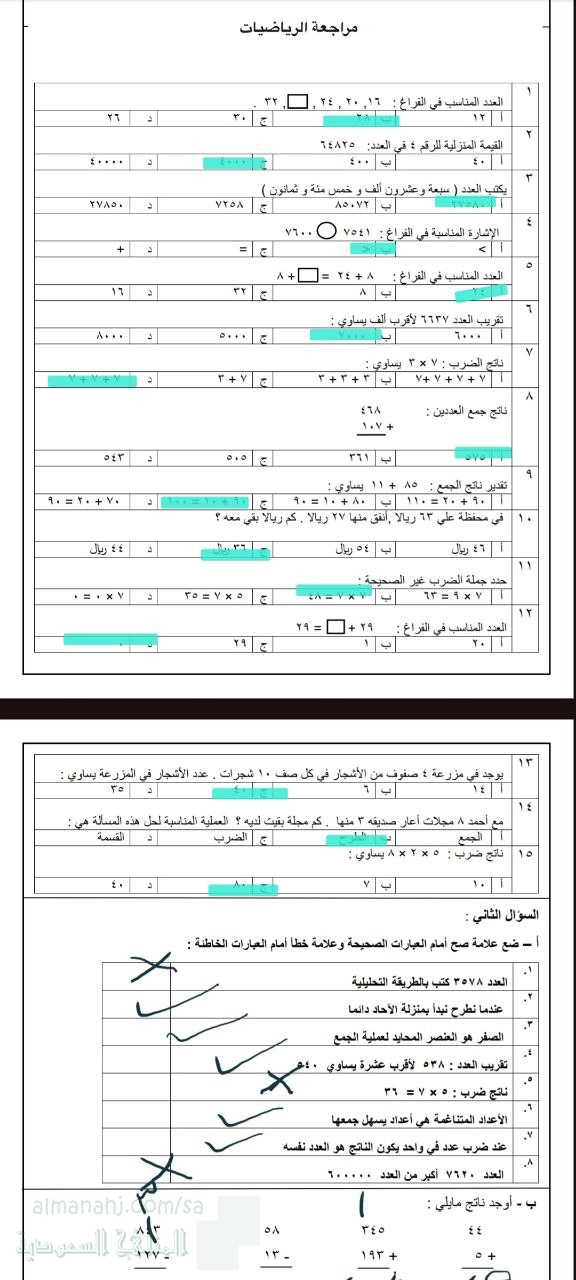 مراجعة الرياضيات
١
العدد المناسب في الفراغ : ١٦ , ٢٠ , ٢٤ , , ٣٢ .
أ ١٢ ب ٢٨ ج ٣٠ د ٢٦
٢
القيمة المنزلية للرقم ٤ في العدد: ٦٤٨٢٥
أ ٤٠ ب ٤٠٠ ج ٤٠٠٠ د ٤٠٠٠٠
٣
يكتب العدد ( سبعة وعشرون ألف و خمس مئة و ثمانون )
أ ٢٧٥٨٠ ب ٨٥٠٧٢ ج ٧٢٥٨ د ٢٧٨٥٠
٤
الإشارة المناسبة في الفراغ : ٧٥٤١ ٧٦٠٠
أ > ب < ج = د +
٥
العدد المناسب في الفراغ : ٨ + ٢٤ = + ٨
أ ٢٤ ب ٨ ج ٣٢ د ١٦
٦
تقريب العدد ٦٦٣٧ لأقرب ألف يساوي :
أ ٦٠٠٠ ب ٧٠٠٠ ج ٥٠٠٠ د ٨٠٠٠
٧
ناتج الضرب : ٧ × ٣ يساوي :
أ ٧ + ٧ + ٧ +٧ ب ٣ + ٣ + ٣ ج ٧ + ٣ د ٧ + ٧ + ٧
٨
ناتج جمع العددين : ٤٦٨
١٠٧ +
أ ٥٧٥ ب ٣٦١ ج ٥٠٥ د ٥٤٣
٩
تقدير ناتج الجمع : ٨٥ + ١١ يساوي :
أ ٩٠ + ٢٠ = ١١٠ ب ٨٠ + ١٠ = ٩٠ ج ٩٠ + ١٠ = ١٠٠ د ٧٠ + ٢٠ = ٩٠
١٠
في محفظة علي ٦٣ ريالا ,أنفق منها ٢٧ ريالا . كم ريالا بقي معه ؟
أ ٤٦ ريال ب ٥٤ ريال ج ٣٦ ريال د ٤٤ ريال
١١
حدد جملة الضرب غير الصحيحة :
أ ٧ × ٩ = ٦٣ ب ٧ × ٧ = ٤٨ ج ٥ × ٧ = ٣٥ د ٧ × ٠ = ٠
١٢
العدد المناسب في الفراغ : ٢٩ + = ٢٩
أ ٢٠ ب ١ ج ٢٩ د ٠
١٣
يوجد في مزرعة ٤ صفوف من الأشجار في كل صف ١٠ شجرات . عدد الأشجار في المزرعة يساوي :
أ ١٤ ب ٦ ج ٤٠ د ٣٥
١٤
مع أحمد ٨ مجلات أعار صديقه ٣ منها . كم مجلة بقيت لديه ؟ العملية المناسبة لحل هذه المسألة هي :
أ الجمع ب الطرح ج الضرب د القسمة
١٥
ناتج ضرب : ٥ × ٢ × ٨ يساوي :
أ ١٠ ب ٧ ج ٨٠ د ٤٠
السؤال الثاني :
أ – ضع علامة صح أمام العبارات الصحيحة وعلامة خطأ أمام العبارات الخاطئة :
١. العدد ٣٥٧٨ كتب بالطريقة التحليلية
٢. عندما نطرح نبدأ بمنزلة الآحاد دائما
٣. الصفر هو العنصر المحايد لعملية الجمع
٤. تقريب العدد : ٥٣٨ لأقرب عشرة يساوي ٥٤٠
٥. ناتج ضرب : ٥ × ٧ = ٣٦
٦. الأعداد المتناغمة هي أعداد يسهل جمعها
٧. عند ضرب عدد في واحد يكون الناتج هو العدد نفسه
٨. العدد ٧٦٢٠ أكبر من العدد ٦٠٠٠٠٠
almanahj.com/sa
المناهج السعودية
ب - أوجد ناتج مايلي :
٤٤ ٣٤٥ ٥٨ ٨٤٣
٥ + ١٩٣ + ١٣ - ١٢٧ -